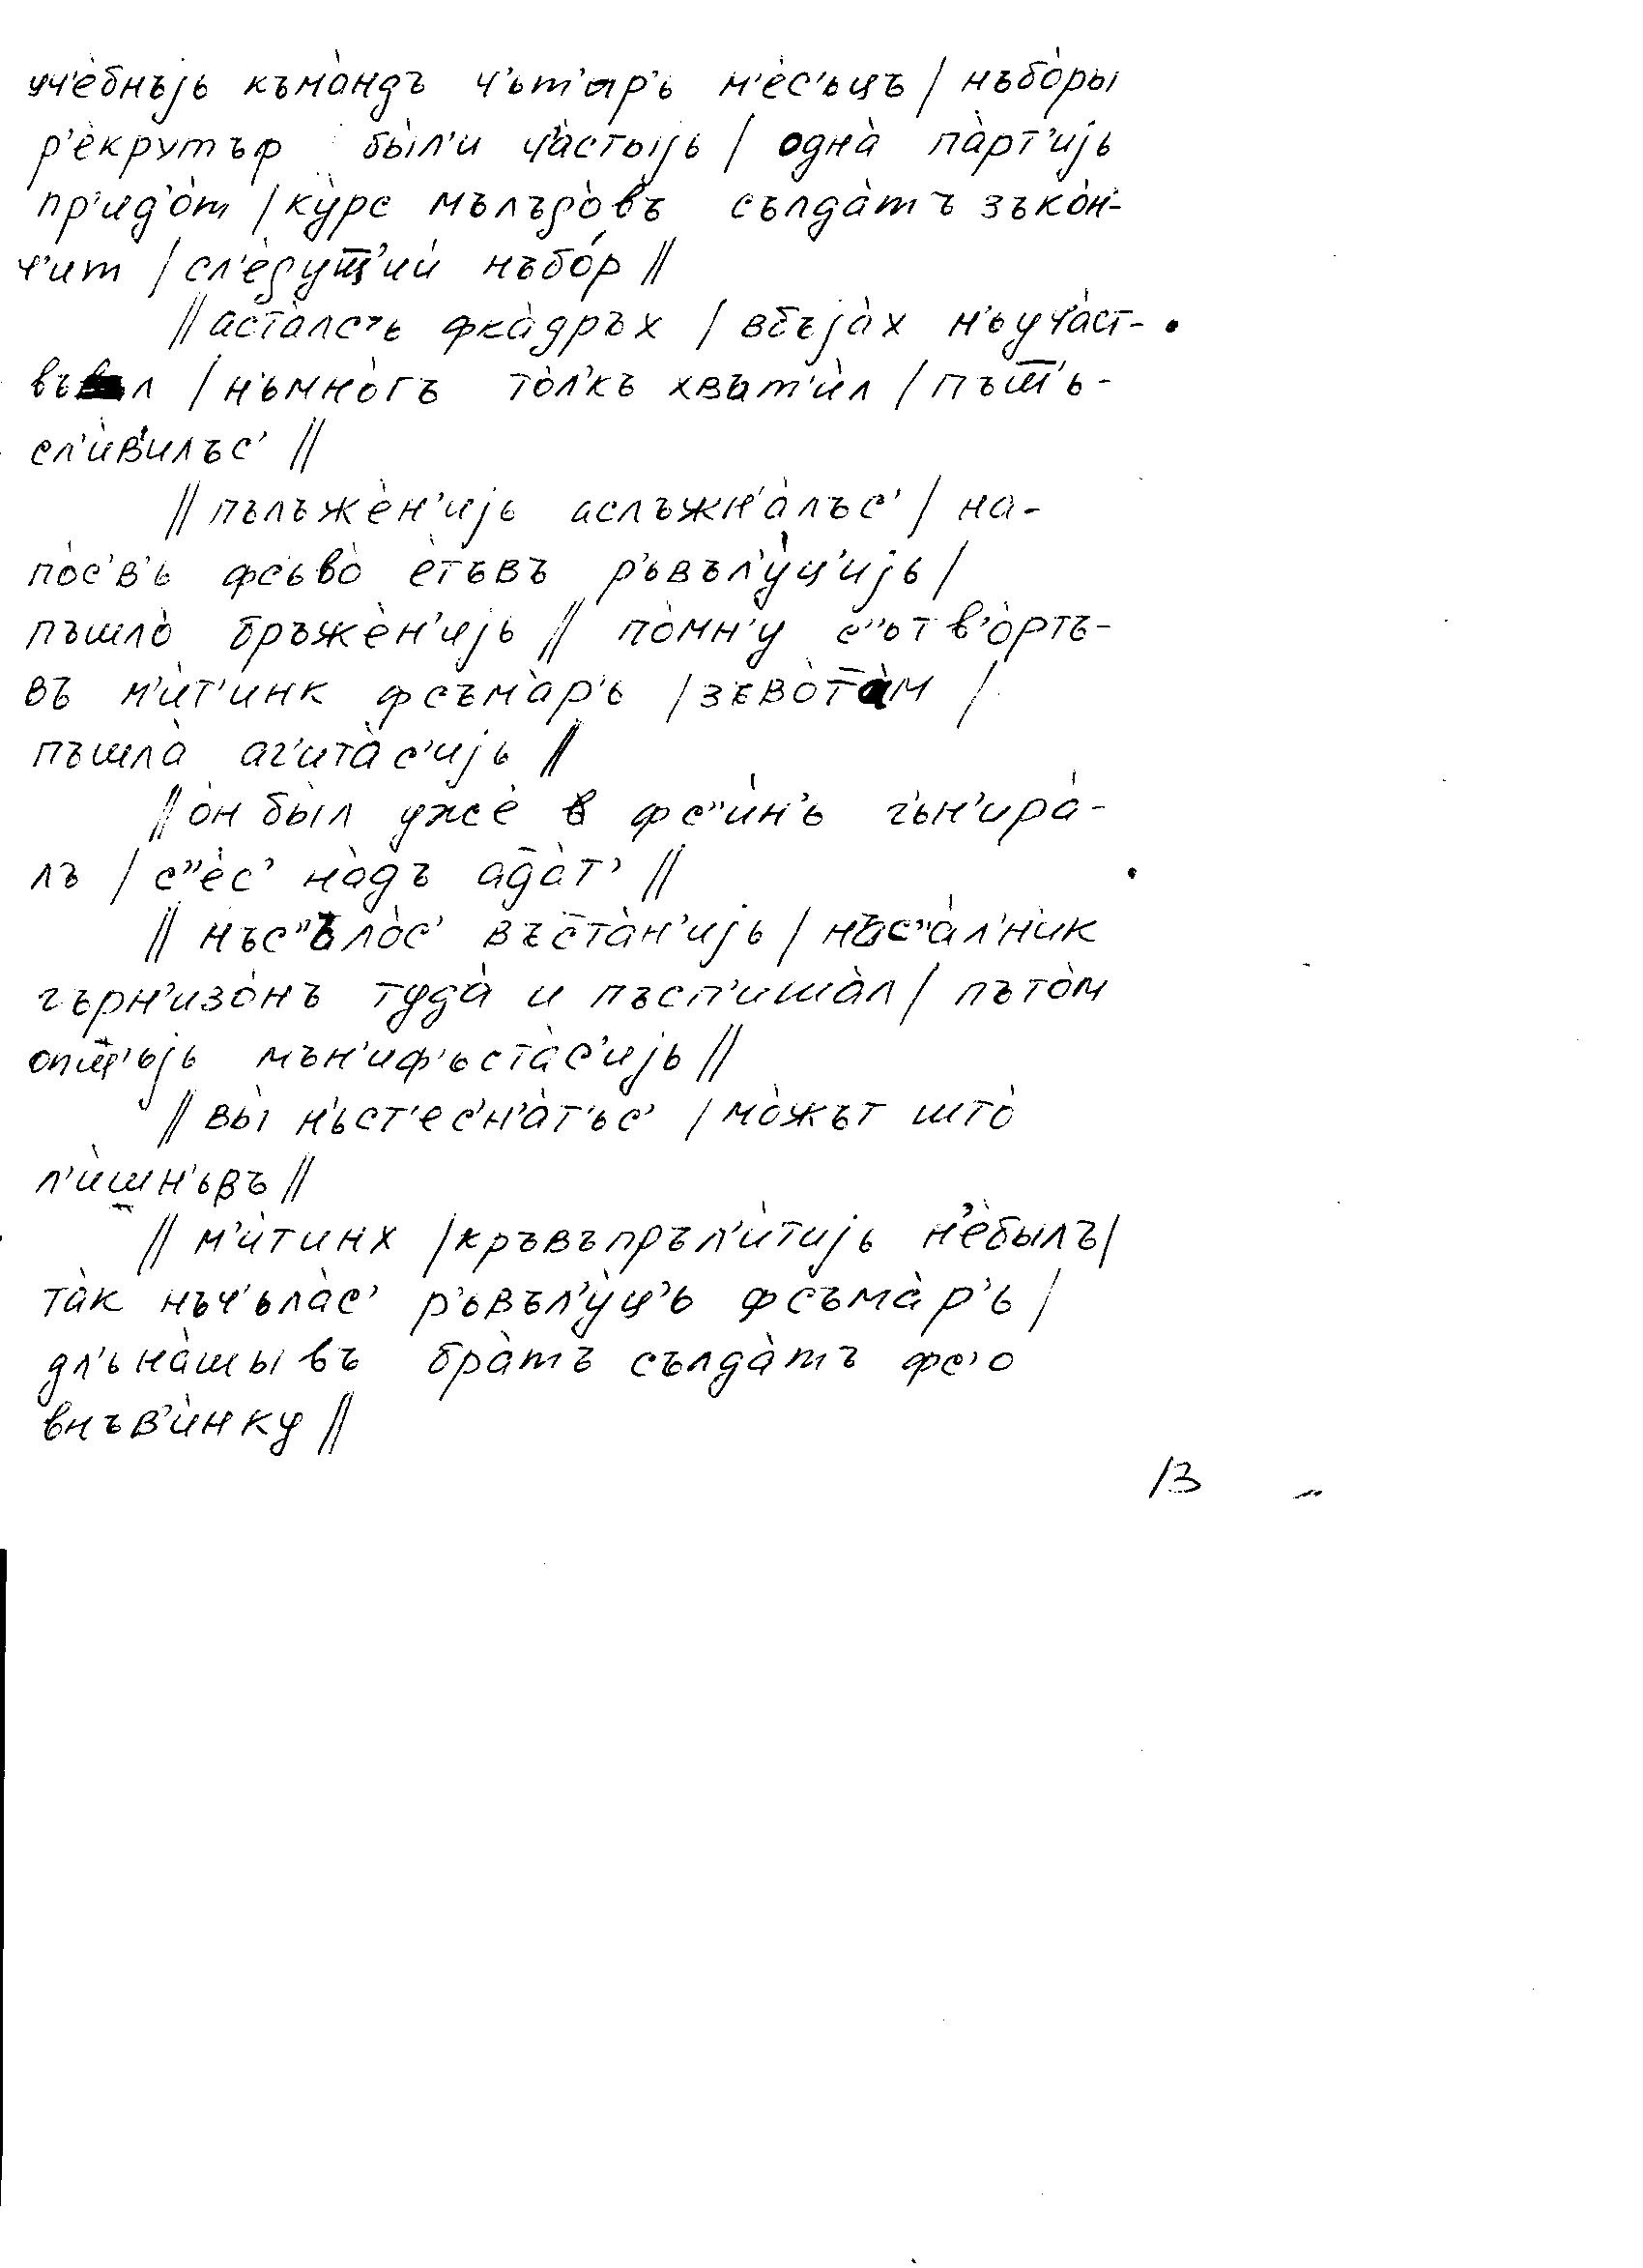 уч'ѐбнъjь къмàндъ ч'ьт'ыр'ь м'ѐс'ьцъ / нъбòры
р'ѐкрутъф бы̀л'и ч'àстыjь / однà пàрт'иjь
пр'ид'òт / ку̀рс мълъдòвъ сълдàтъ зъкòн-
ч'ит / сл'ѐдуш̅'ий нъбóр //
// астàлс'ь фкàдръх / вбъjàх н'ьучàст-
въвъл / н'ьмнòгъ тòл'къ хвът'ѝл / пъш̅'ь-
сл'ѝв'илъс' //
// пълъжѐн'иjь аслъжн'àлъс' / на-
пòс'в'ь фс'ьвò ѐтъвъ р'ьвъл'у̀ц'иjь /
пъшлò бръжѐн'иjь // пòмн'у с''ьтв'òртъ-
въ м'ѝт'инк фсъмàр'ь / зъвòт̅ам /
пъшлà аг'итàс'иjь //
// òн бы̀л ужѐ в фс''ѝн'ь г'ьн'ирà-
лъ / с''ѐс' нàдъ ад̅àт' //
// нъс''ьлòс' въс̅тàн'иjь / нъс''àл'ник
гърн'изòнъ тудà и пъсп'ишàл / пътòм
опш̅'ьjь мън'иф'ьстàс'иjь //
// вы̀ н'ьст'ес'н'àт'ьс' / мòжът штò
л'ѝшн'ьвъ //
// м'ѝтинх / кръвъпръл'ѝтиjь н'ѐбылъ /
тàк нъч'ьлàс' р'ьвъл'у̀ц'ь фсъмàр'ь /
дл'ьнàшывъ брàтъ сълдàтъ фс'о
внъв'ѝнку //
13